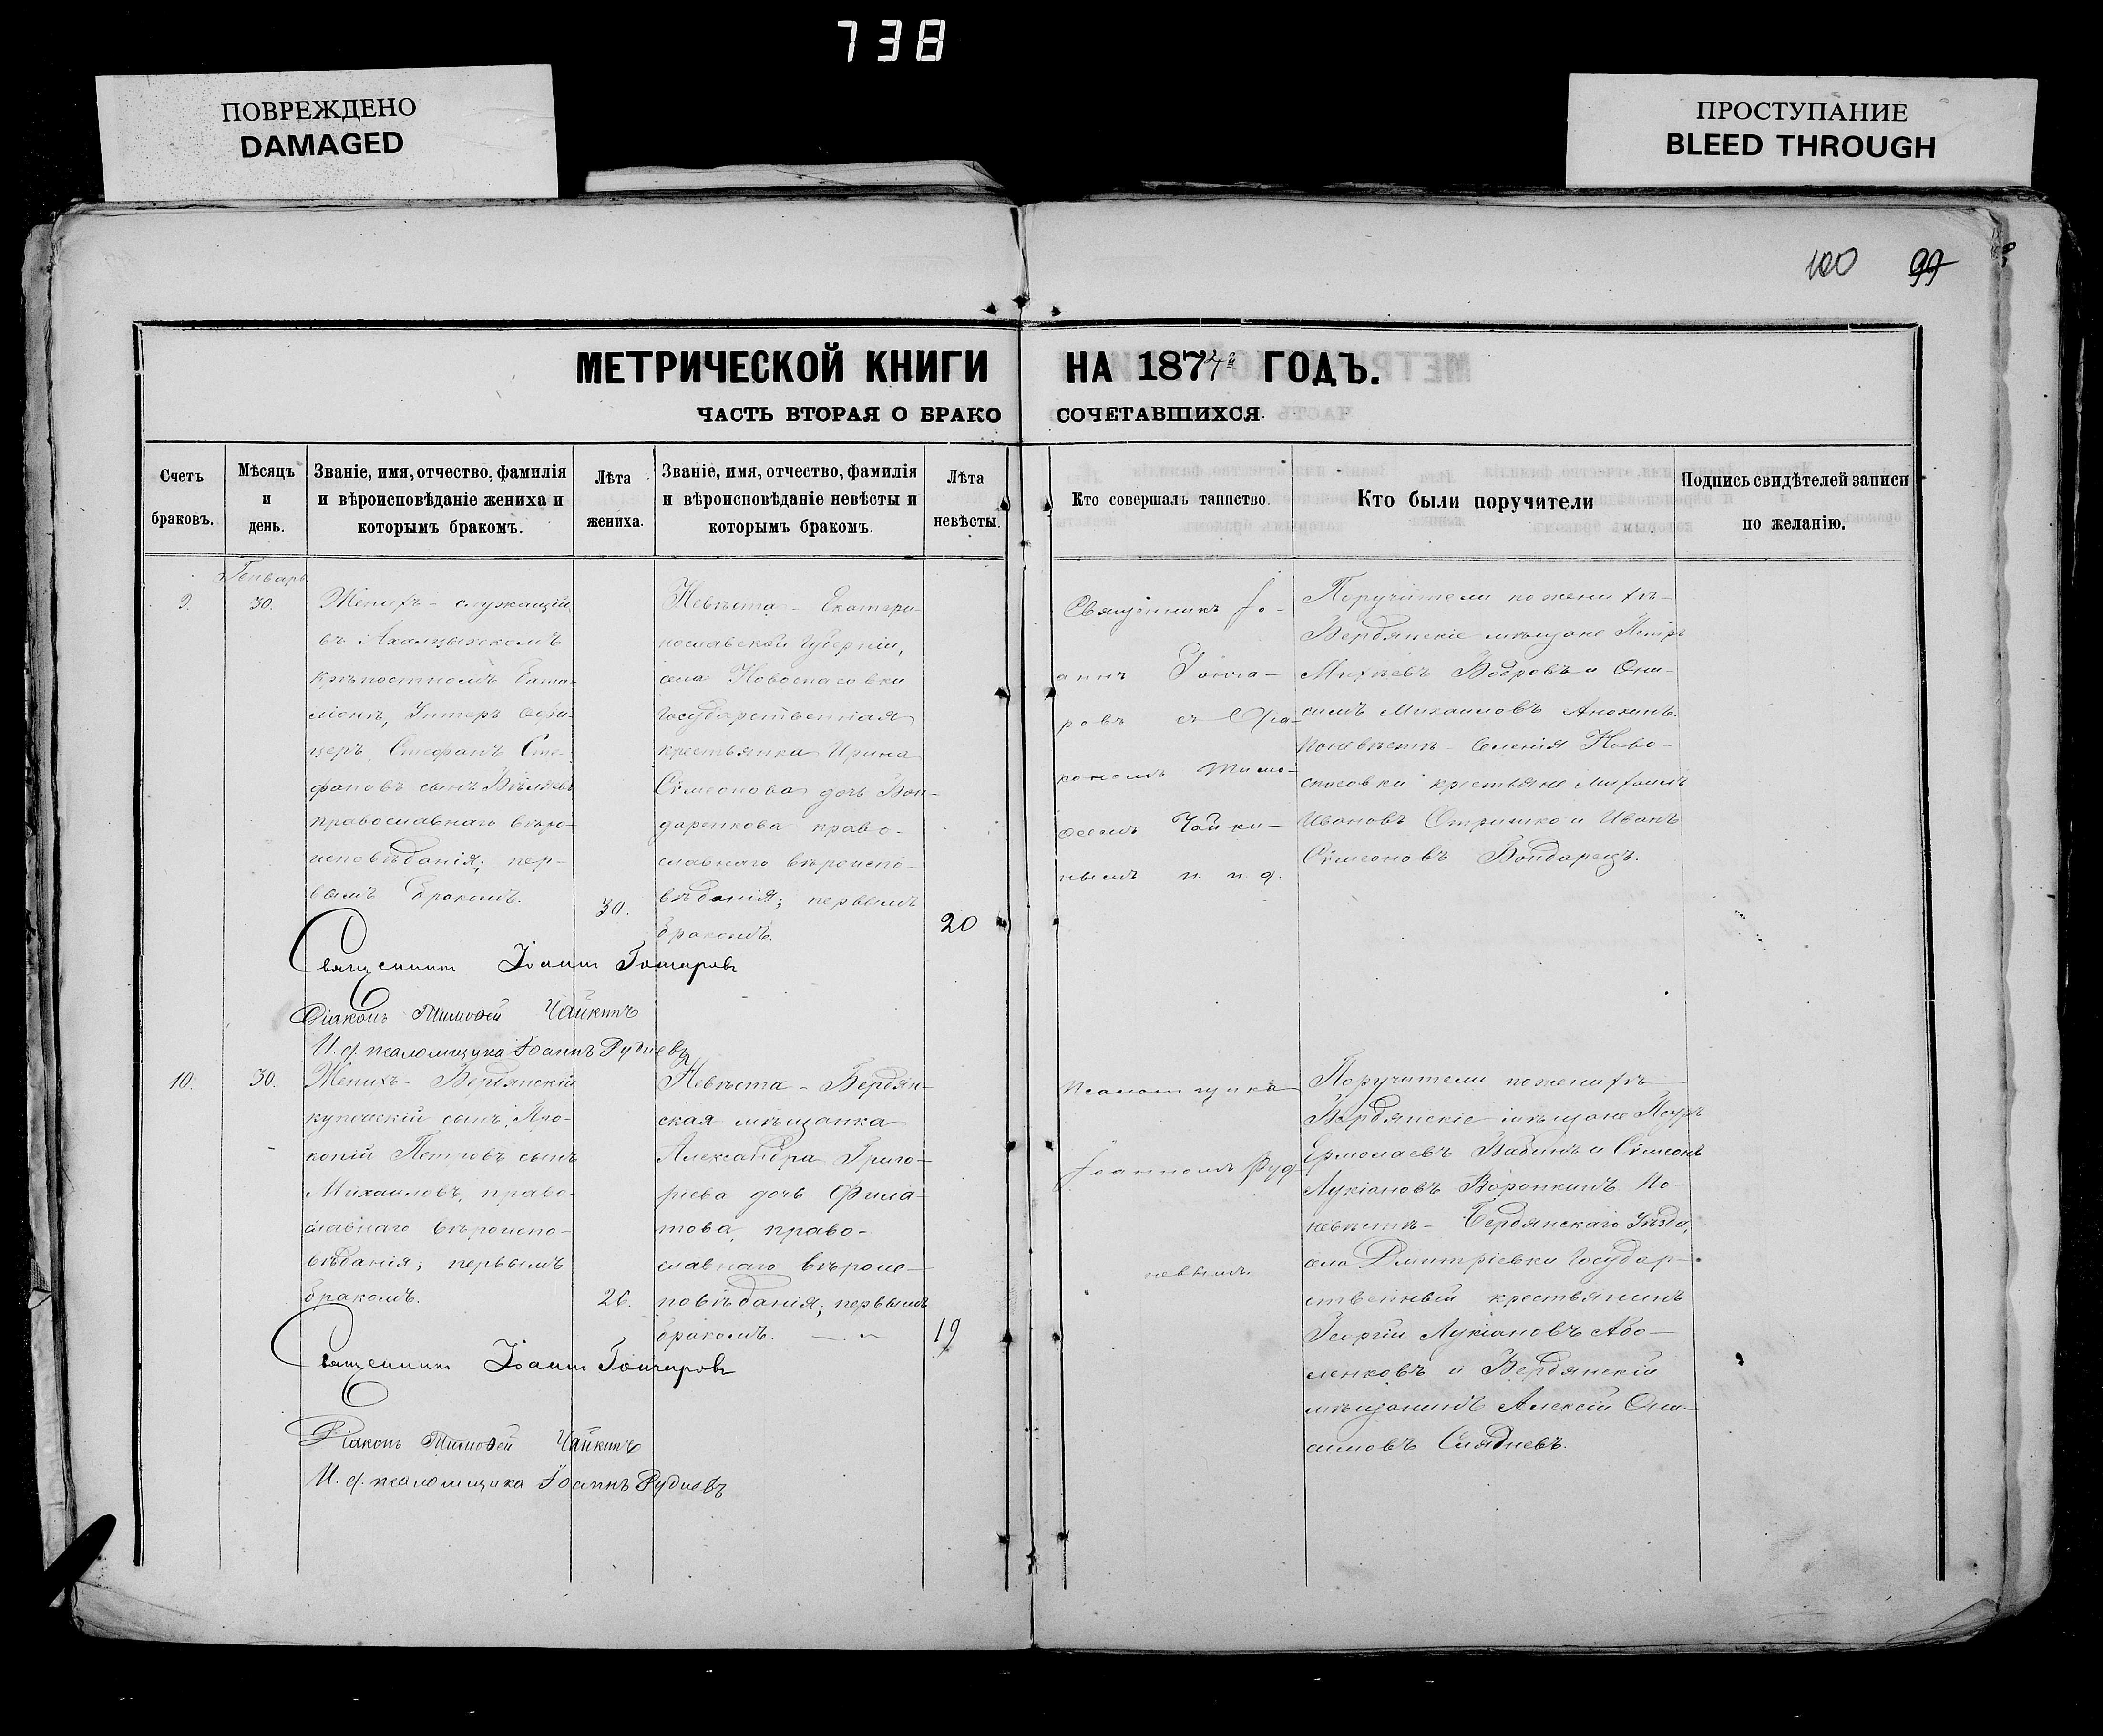 738
ПОВРЕЖДЕНО
DAMAGED
ПРОСТУПАНИЕ
BLEED THROUGH
100 99
МЕТРИЧЕСКОЙ КНИГИ НА 1874й ГОДЪ.
ЧАСТЬ ВТОРАЯ О БРАКОСОЧЕТАВШИХСЯ.
Счетъ браковъ.
Мѣсяцъ и день.
Званіе, имя, отчество, фамилія
и вѣроисповѣданіе жениха и
которымъ бракомъ.
Лѣта жениха.
Званіе, имя, отчество, фамилія
и вѣроисповѣданіе невѣсты и
которымъ бракомъ.
Лѣта невѣсты.
Кто совершалъ таинство.
Кто были поручители
Подпись свидѣтелей записи
по желанію.
9.
Генварь
30.
Женихъ - служащій
въ Ахалцыхскомъ
крѣпостномъ бата-
ліонѣ, Унтеръ Офи-
церъ, Стефанъ Сте-
фановъ сынъ Бѣляевъ
православнаго вѣро-
исповѣданія; пер-
вымъ бракомъ.
30.
Невѣста - Екатери-
нославской Губерніи,
села Новоспасовки
Государственная
крестьянка Ирина
Сѵмеонова дочь Бон-
даренкова право-
славнаго вѣроиспо-
вѣданія; первымъ
бракомъ.
20
Священникъ Іо-
аннъ Гонча-
ровъ съ Діа-
кономъ Тимо-
ѳеемъ Чайки-
нымъ и. п. д.
Поручители по женихѣ -
Бердянскіе мѣщане Петръ
Михѣевъ Бобровъ и Они-
симъ Михаиловъ Анохинъ.
По невѣстѣ - Селенія Ново-
спасовки крестьяне Михаилъ
Ивановъ Стришко и Иванъ
Сѵмеоновъ Бондарецъ.
Священникъ Іоаннъ Гончаровъ
Діаконъ Тимоѳей Чайкинъ
И. д. псаломщика Іоаннъ Рудневъ
10.
30.
Женихъ - Бердянскій
купеческій сынъ, Про-
копій Петровъ сынъ
Михаиловъ, право-
славнаго вѣроиспо-
вѣданія; первымъ
бракомъ.
26.
Невѣста - Бердян-
ская мѣщанка
Александра Григо-
ріева дочь Фила-
това, право-
славнаго вѣроис-
повѣданія; первымъ
бракомъ.
19
псаломщика
Іоанномъ Руд-
невымъ.
Поручители по женихѣ -
Бердянскіе мѣщане Петръ
Ермолаевъ Бабинъ и Сѵмеонъ
Лукіановъ Воронкинъ. По
невѣстѣ - Бердянскаго Уѣзда,
села Дмитріевки Государ-
ственный крестьянинъ
Георгій Лукіановъ Або-
ленковъ и Бердянскій
мѣщанинъ Алексѣй Они-
симовъ Слядневъ.
Священникъ Іоаннъ Гончаровъ
Діаконъ Тимоѳей Чайкинъ
И. д. псаломщика Іоаннъ Рудневъ